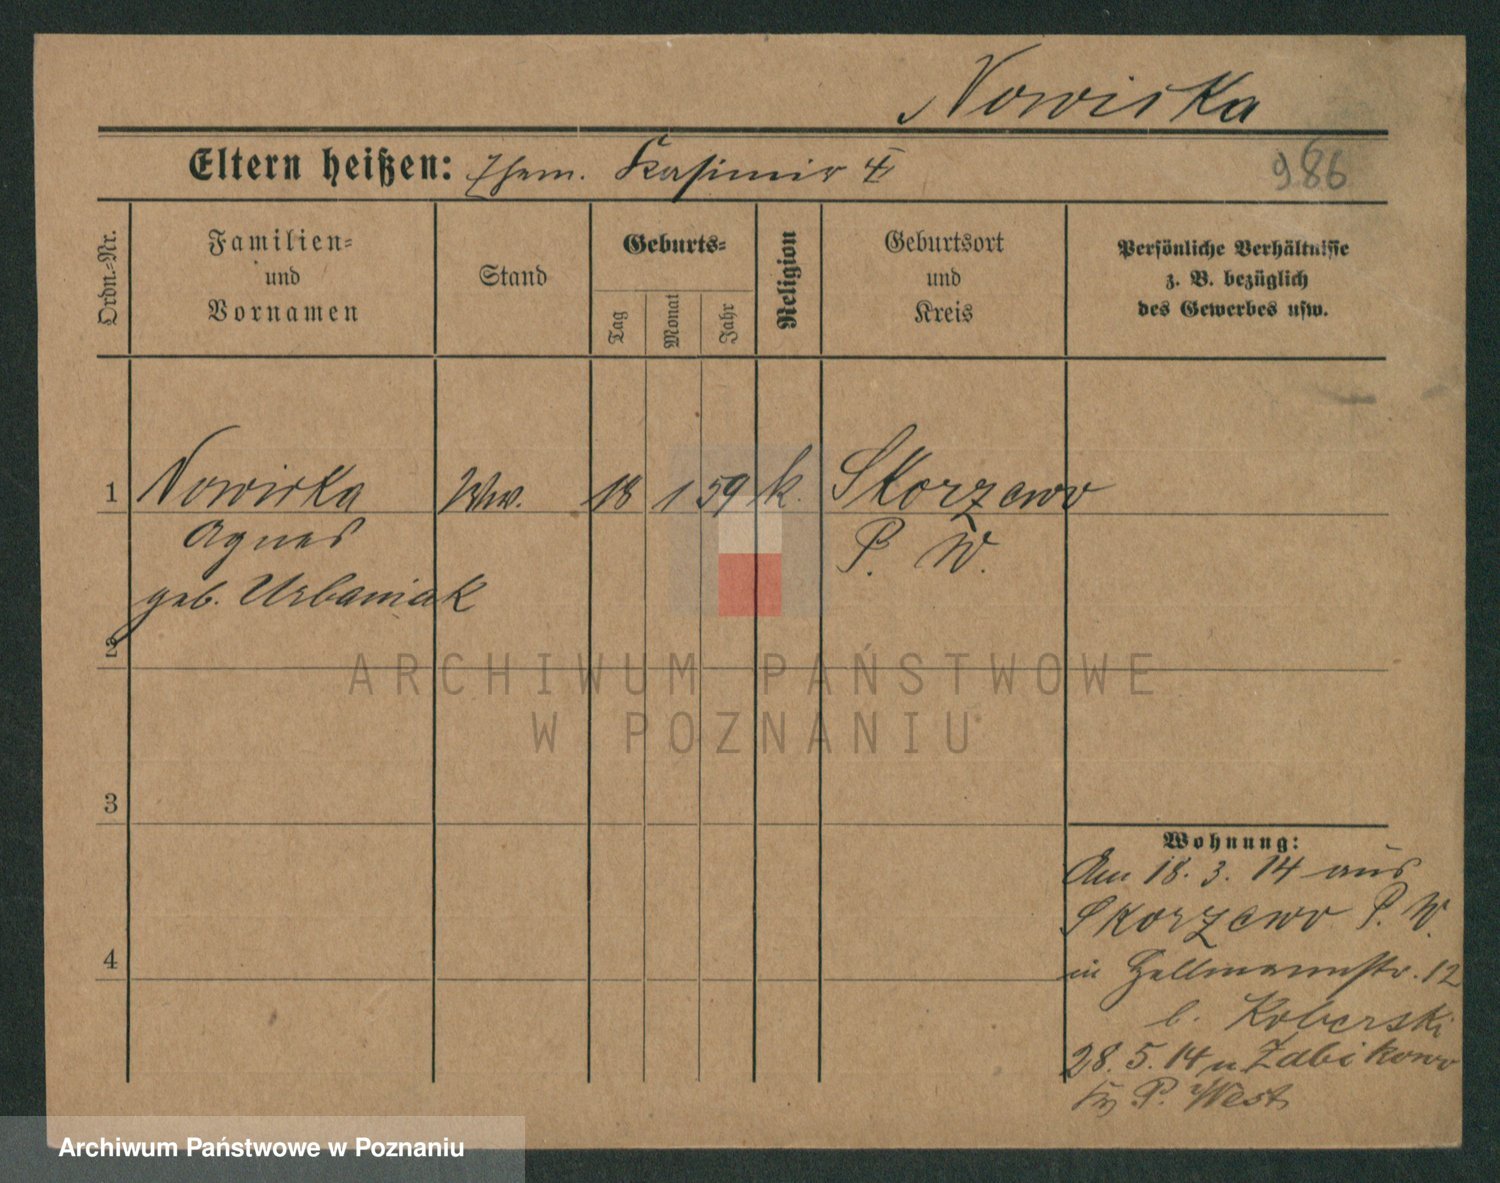 Nowicka
Eltern heißen: Ehem. Kasimir †
986
Ordn.-Nr.
Familien-
und
Vornamen
Stand
Geburts-
Tag
Monat
Jahr
Religion
Geburtsort
und
Kreis
Persönliche Verhältnisse
z. B. bezüglich
des Gewerbes usw.
1 Nowicka Ww. 18 1 59 k. Skorzewo
Agnes P. W.
geb. Urbaniak
2
3
4
Wohnung:
Am 18. 3. 14 aus
Skorzewo P. W.
in Hellmannstr. 12
b. Koberski
28. 5. 14 n Zabikowo
Kr P. West
ARCHIWUM PAŃSTWOWE
W POZNANIU
Archiwum Państwowe w Poznaniu